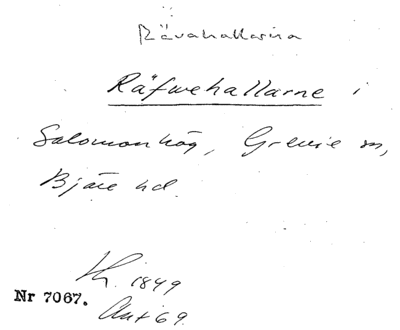 Rävahallarna
Räfwehallarne i
Salomonhög, Grevie sn,
Bjäre hd.
1849
Nr 7067.
Akt 69.